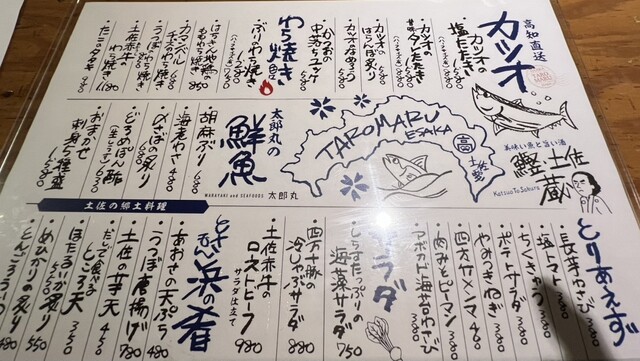 高知直送
カツオ
カツオの
塩たたき
カツオの
タレたたき
カツオの
はらんぼ炙り
カツオなめろう
かつおの
中落ちユッケ
わら焼き
ぶりわら焼き
はちきん地鶏
ももわら焼き 850
カマンベール
チーズのわら焼き
うつぼわら焼き
土佐赤牛
わら焼き 1180
たこのタタキ
TAROMARU
ESAKA
高
土佐
美味い魚と旨い酒
土佐
鰹蔵
Katsuo To Sakura
太郎丸の
鮮魚
WARAYAKI and SEAFOODS 太郎丸
胡麻ぶり 680
海老わさ 480
〆さばの炙り
どろめぽん酢
(生しらす)
おまかせ
刺身5種盛 1680
土佐の郷土料理
とりあえず
長芋わさび 380
塩トマト 380
ちくきゅう 380
ポテトサラダ 380
やみつきねぎ 380
四方サメンマ 480
あみとピーマン 380
アボカド海苔わさび 380
サラダ
しらすたっぷりの
海藻サラダ 750
四万十豚の
冷しゃぶサラダ 880
土佐赤牛の
ローストビーフ
サラダ仕立て 980
浜の香
あおさの天ぷら 480
うつぼ唐揚げ 780
土佐の芋天 450
だしで食べる
ところ天 350
ほたるいか炙り 550
めひかりの炙り 450